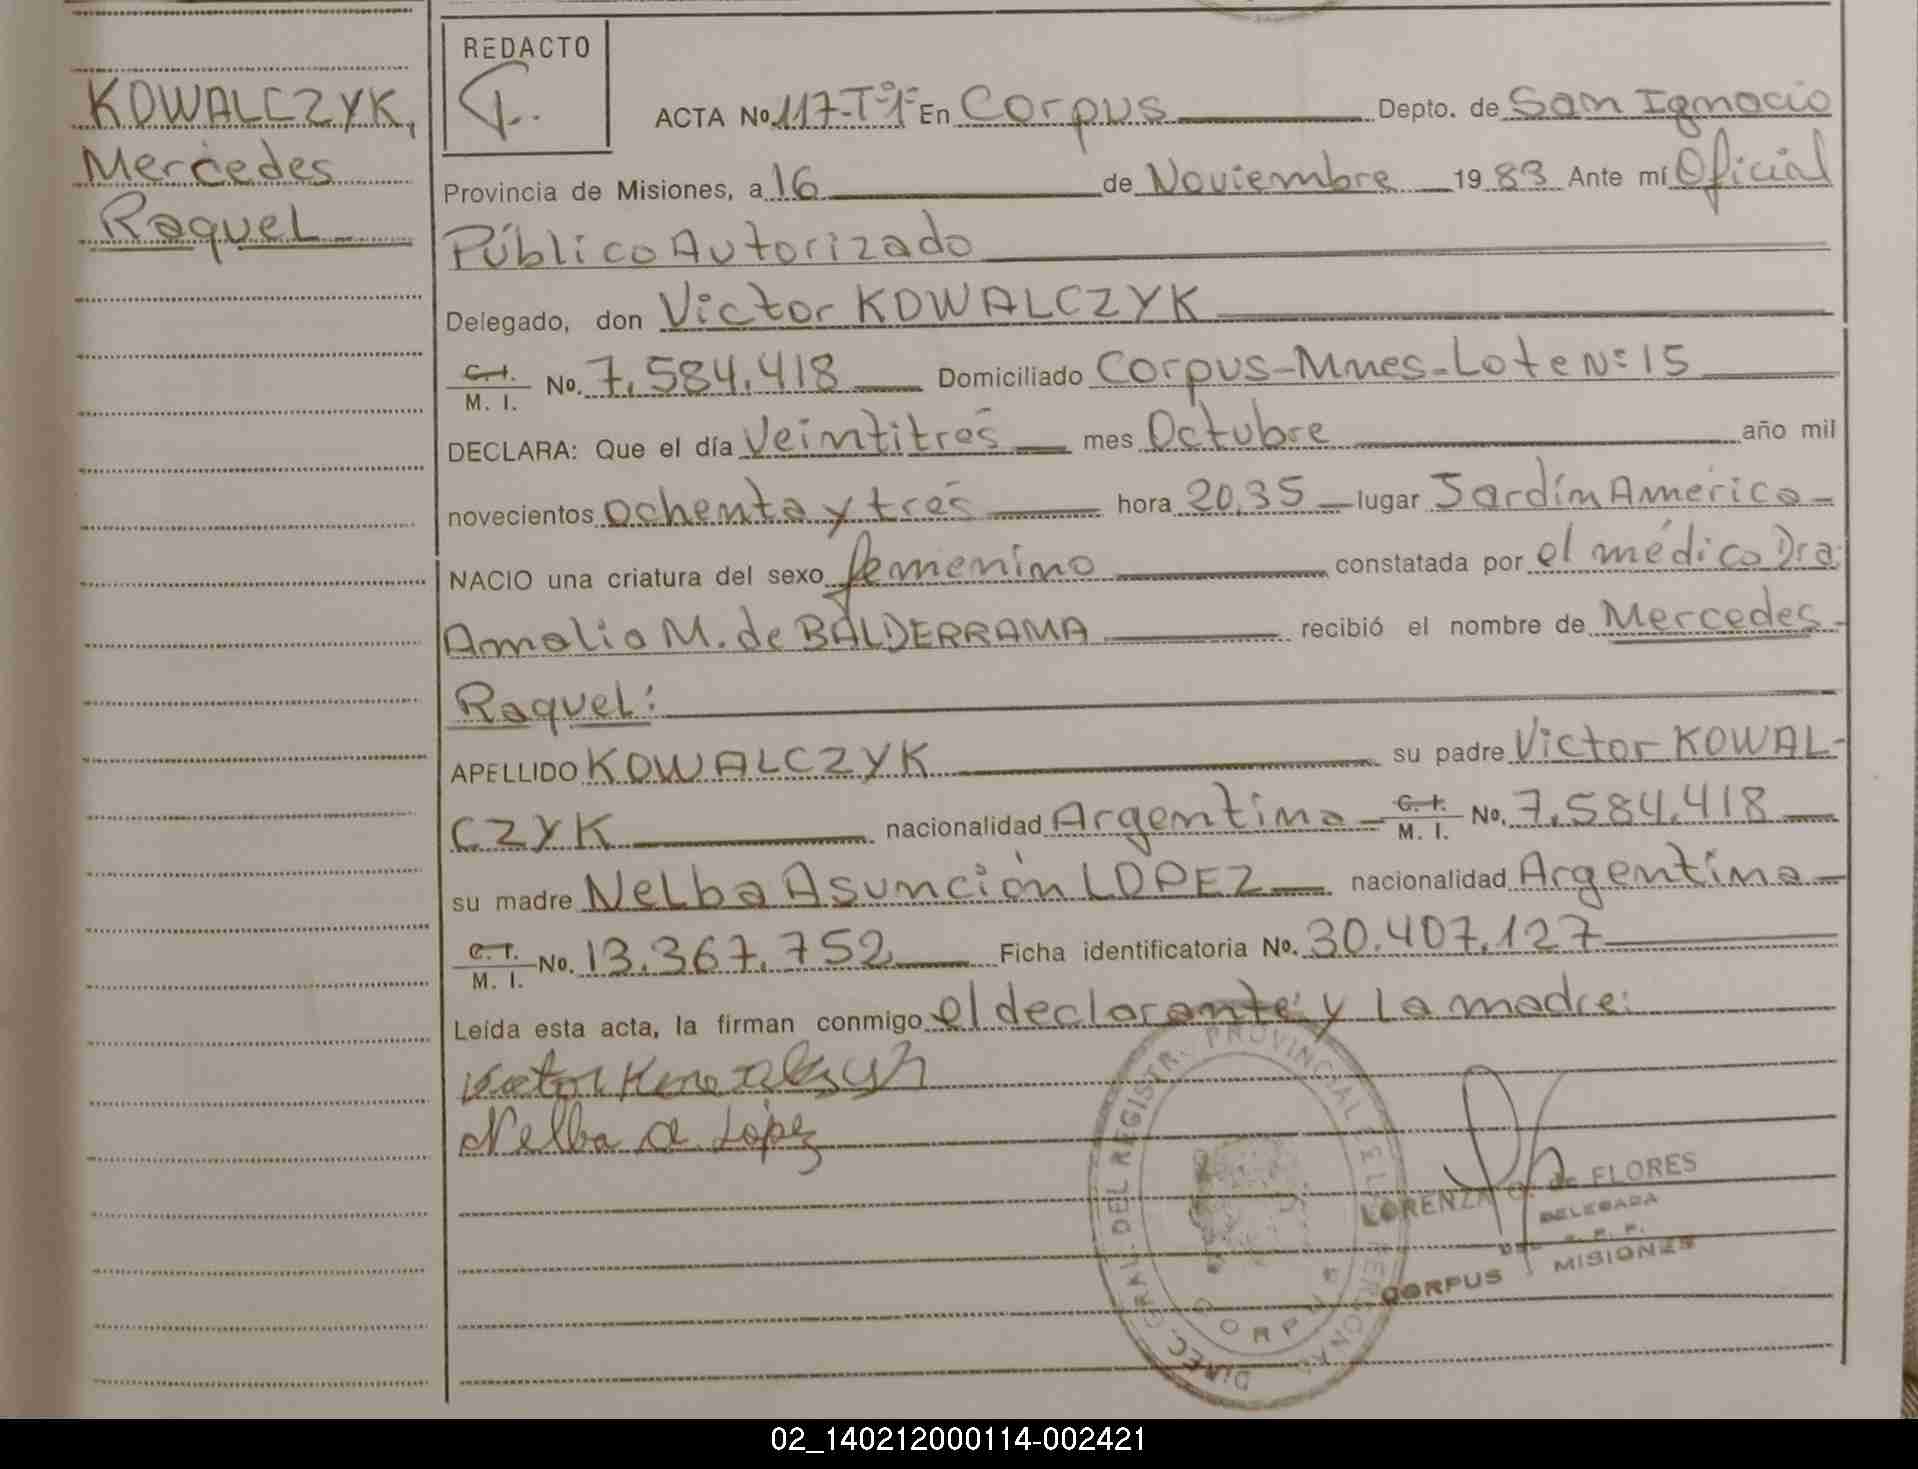 KOWALCZYK,
Mercedes
Raquel
REDACTO
ACTA No. 117-Tº1º En Corpus Depto. de San Ignacio
Provincia de Misiones, a 16 de Noviembre 1983 Ante mí Oficial
Público Autorizado
Delegado, don Victor KOWALCZYK
C.I. M. I. No. 7.584.418 Domiciliado Corpus-Mnes-Lote Nº 15
DECLARA: Que el día Veintitrés mes Octubre año mil
novecientos ochenta y tres hora 20,35 lugar Jardín América
NACIO una criatura del sexo femenino constatada por el médico Dra.
Amalia M. de BALDERRAMA recibió el nombre de Mercedes
Raquel:
APELLIDO KOWALCZYK su padre Victor KOWAL-
CZYK nacionalidad Argentina C.I. M. I. No. 7.584.418
su madre Nelba Asunción LOPEZ nacionalidad Argentina
C.I. M. I. No. 13.367.752 Ficha identificatoria No. 30.407.127
Leída esta acta, la firman conmigo el declarante: y la madre:
Nelba A. López
DIREC. GRAL. DEL REGISTR. PROVINCIAL DE
CORPUS
LORENZA G. de FLORES
DELEGADA
CORPUS MISIONES
02_140212000114-002421